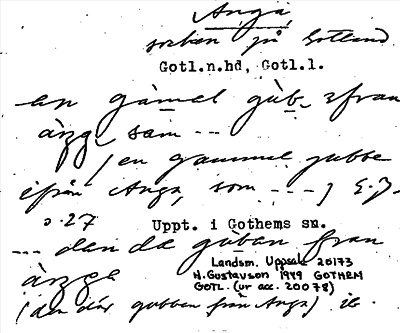 Anga
socken på Gotland
Gotl.n.hd, Gotl.l.
en gàmel gùb, ifran
ängge sàm ---
(en gammel gubbe
ifrån Anga, som ---)
s. 27
Uppt. i Gothems sn.
--- den dä gùban fran
ängge
Landsm. Uppsala 20173
H. Gustavson 1949 GOTHEM
GOTL. (ur acc. 20078)
(den där gubben från Anga) ib.